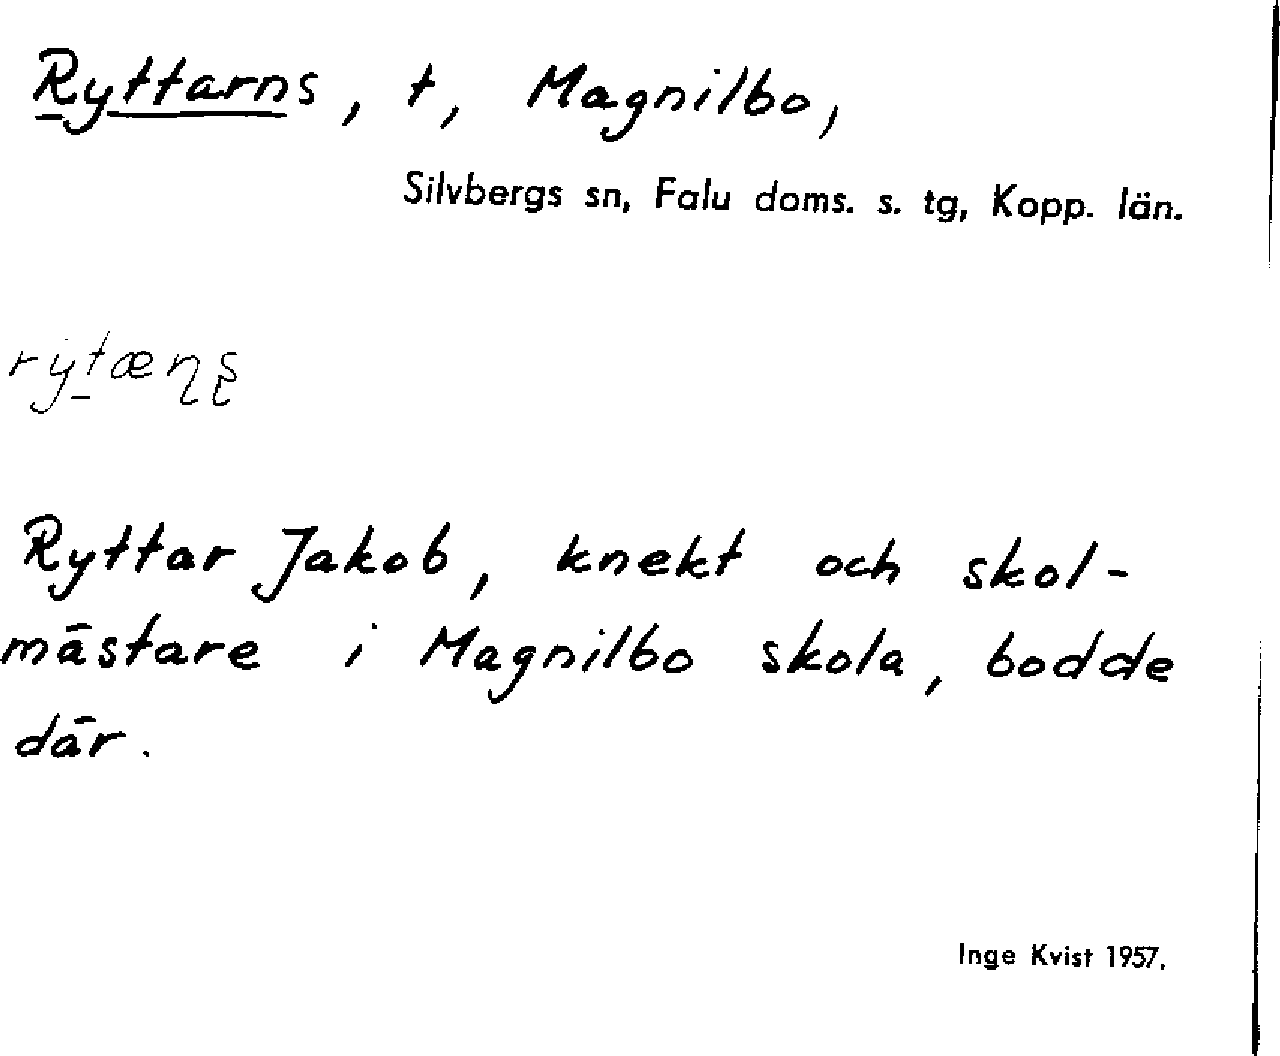 Ryttarns, t, Magnilbo,
Silvbergs sn, Falu doms. s. tg, Kopp. län.
Ryttar Jakob, knekt och skol-
mästare i Magnilbo skola, bodde
där.
Inge Kvist 1957.